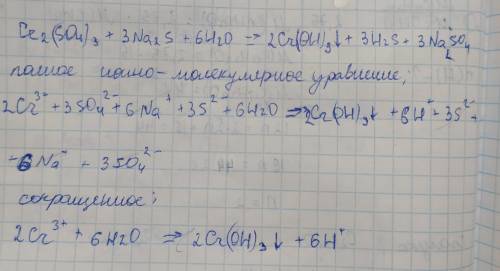 Cr₂(SO₄)₃ + 3Na₂S + 6H₂O ⇒ 2Cr(OH)₃↓ + 3H₂S + 3Na₂SO₄
полное ионно-молекулярное уравнение;
2Cr³⁺ + 3SO₄²⁻ + 6Na⁺ + 3S²⁻ + 6H₂O ⇒ 2Cr(OH)₃↓ + 6H⁺ + 3S²⁻ +
+ 6Na⁺ + 3SO₄²⁻
сокращенное;
2Cr³⁺ + 6H₂O ⇒ 2Cr(OH)₃↓ + 6H⁺